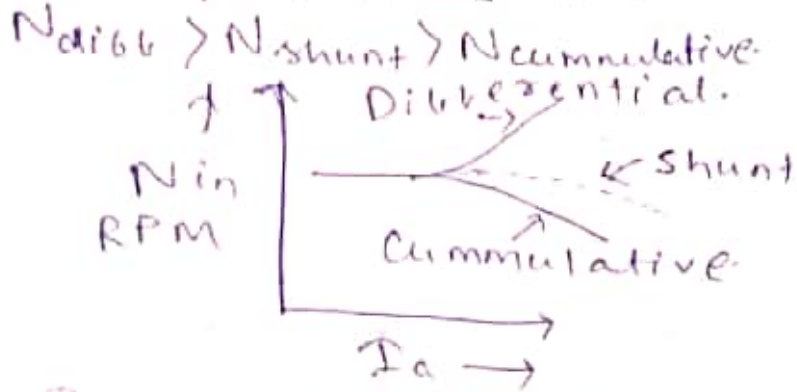 Ndiff > Nshunt > Ncummulative.
Differential.
N in
RPM
Shunt
Cummulative
Ia